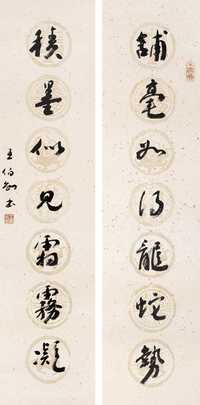 舖毫如得龍蛇勢
積墨似見霜霧凝
王伯敏書